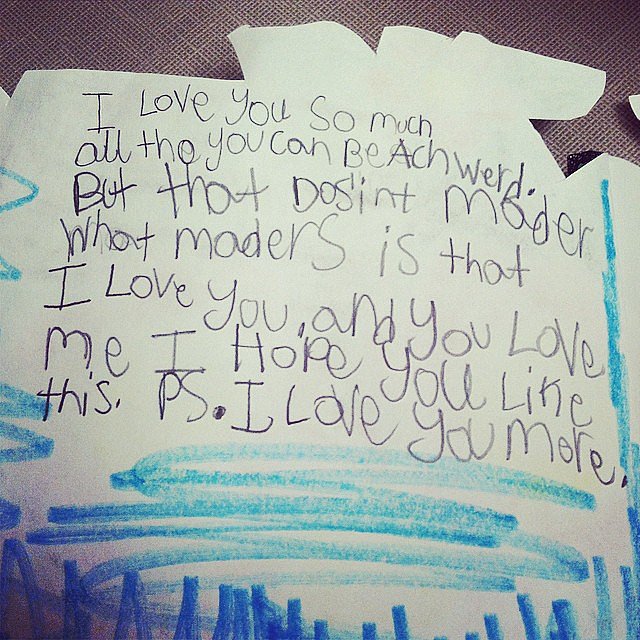 I Love you so much
all tho you can Be Achwerd.
But that Dos'int mader
What maders is that
I Love you, and you Love
me I Hope you Like
this. PS. I Love you more.